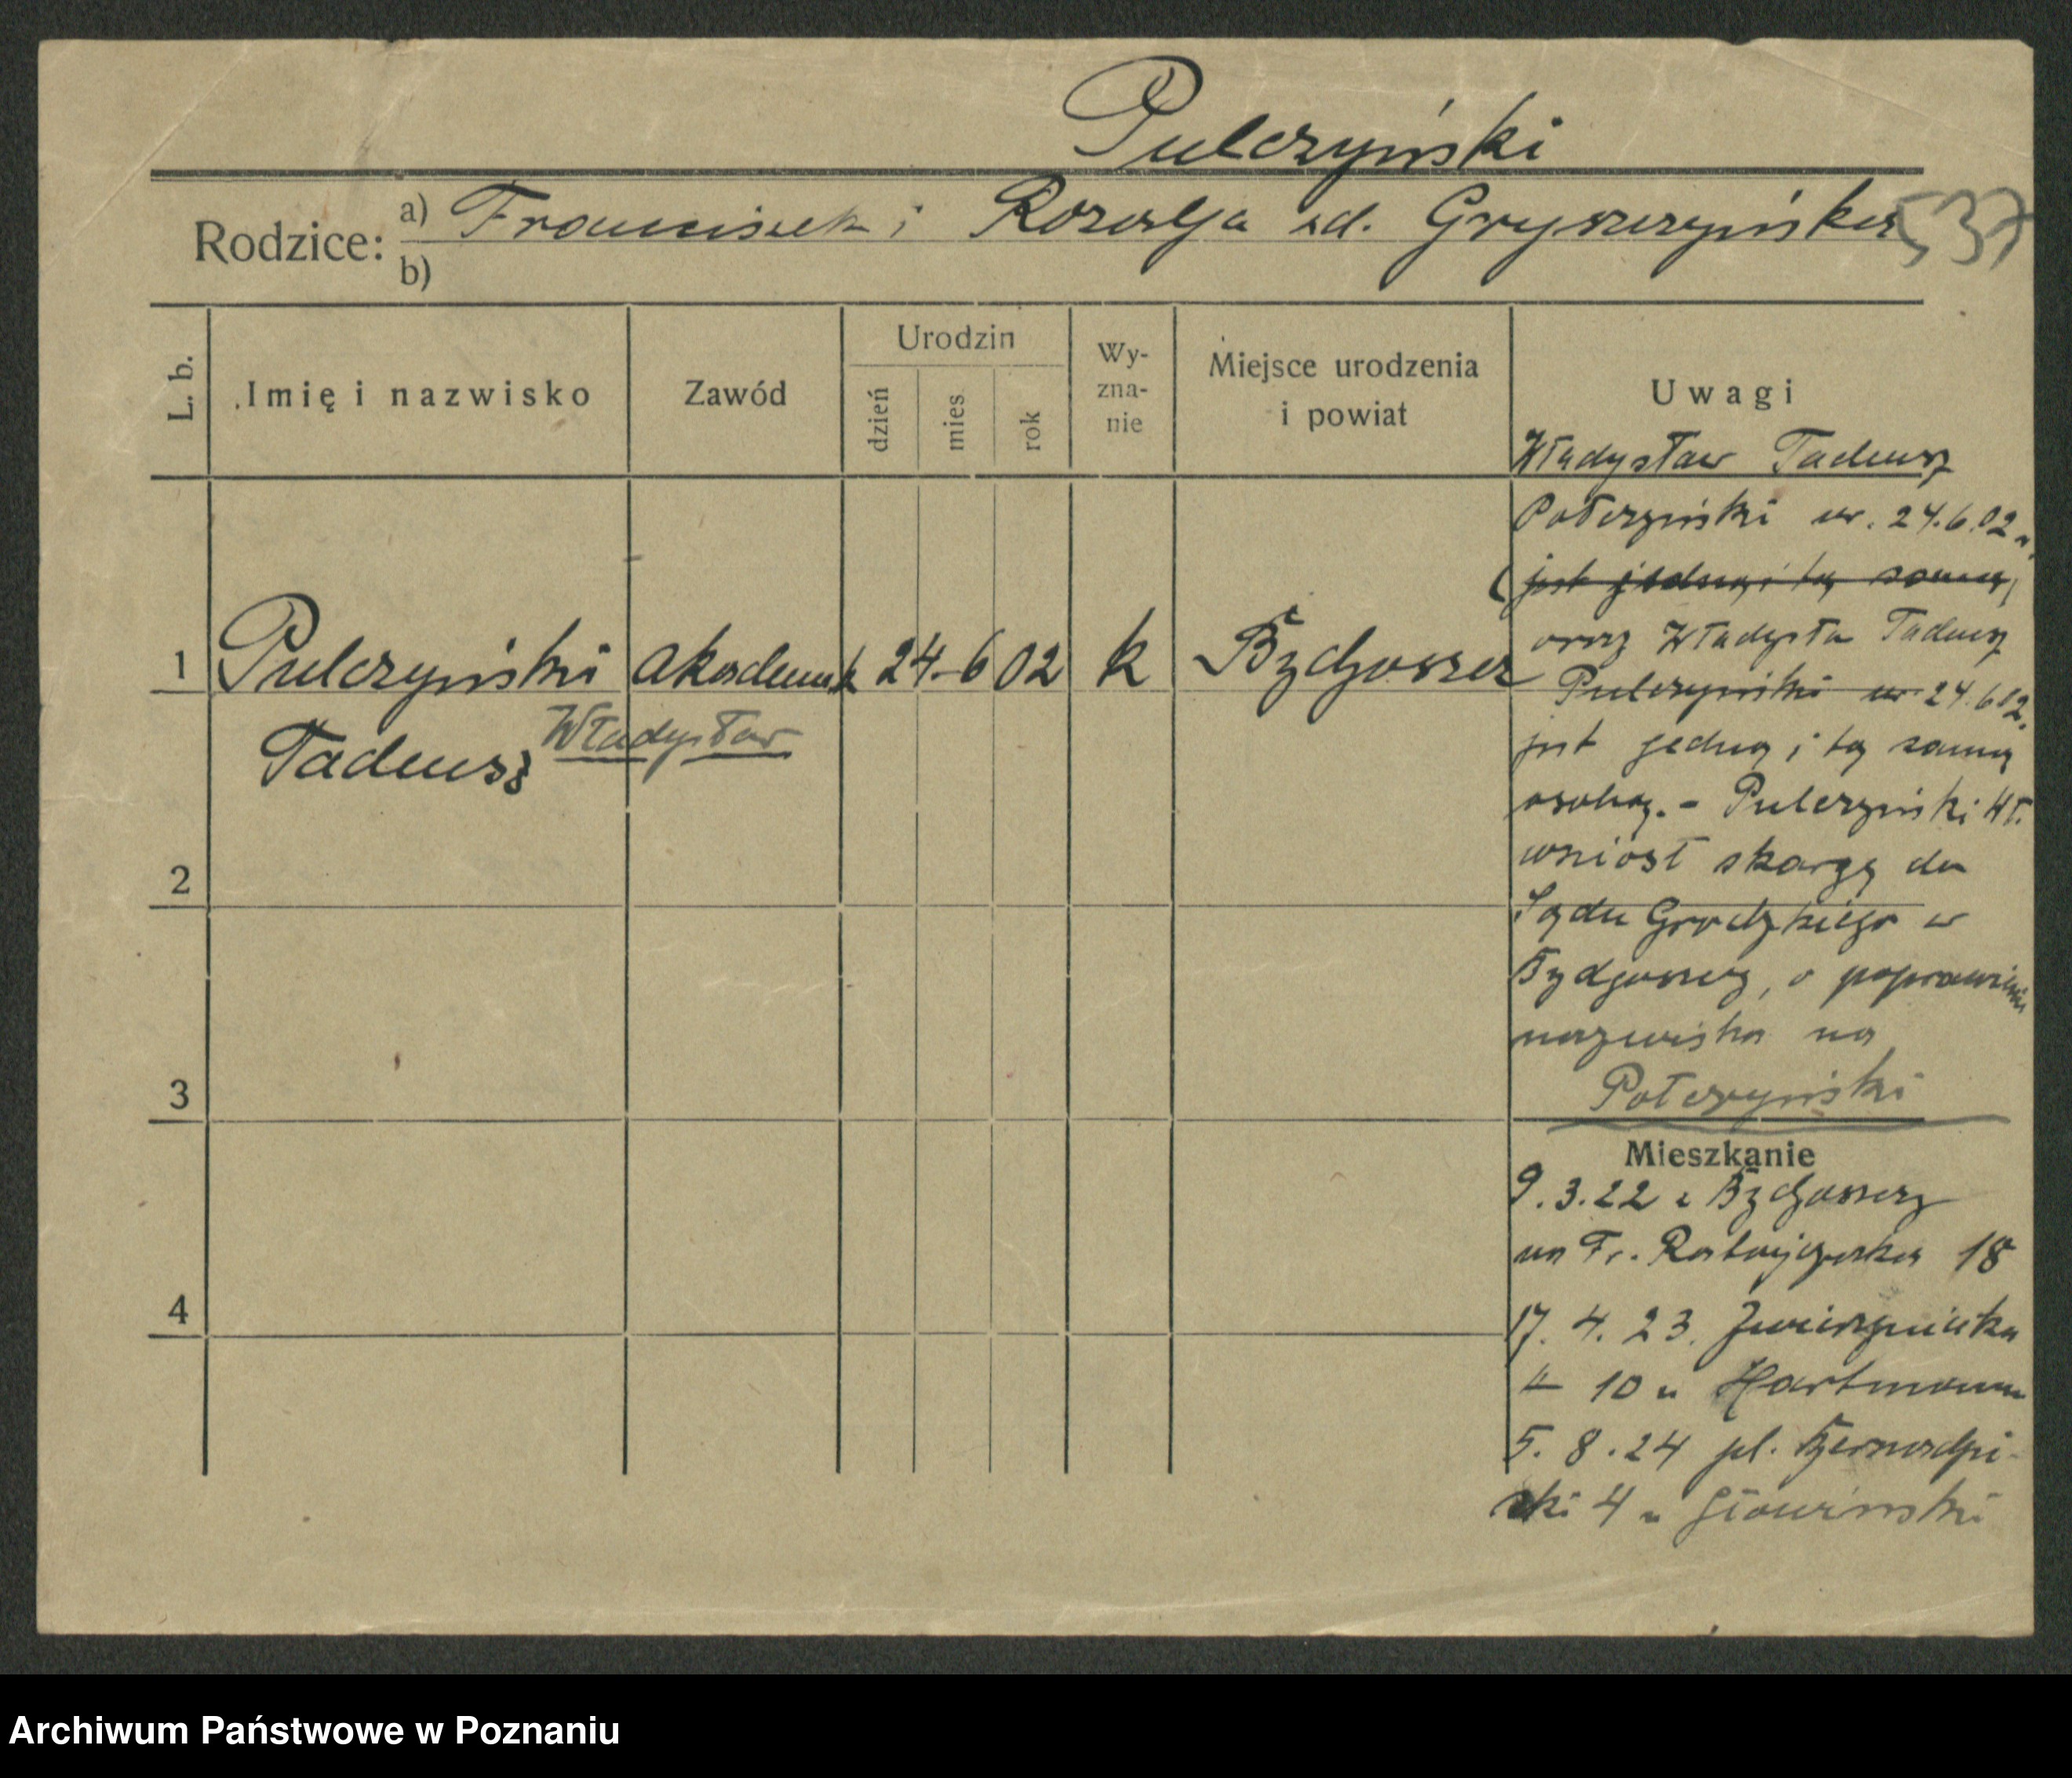 Pulczyński
Rodzice: a) Franciszek i Rozalja zd. Gryszczyńska 537
b)
L. b.
Imię i nazwisko
Zawód
Urodzin
dzień
mies.
rok
Wy-
zna-
nie
Miejsce urodzenia
i powiat
Uwagi
1 Pulczyński akademik 24 6 02 k Bydgoszcz
Tadeusz Władysław
2
3
4
Władysław Tadeusz
Połczyński ur. 24.6.02 r.
(jest jedną i tą samą)
oraz Władysła Tadeusz
Pulczyński ur 24.6.02.
jest jedną i tą samą
osobą. - Pulczyński Wł.
wniósł skargę do
Sądu Grodzkiego w
Bydgoszczy, o poprawienie
nazwiska na
Połczyński
Mieszkanie
9.3.22 z Bydgoszczy
na Fr. Ratajczaka 18
17. 4. 23. Zwierzyniecka
10 u Hartmann
5. 8. 24 pl. Bernardyń-
ski 4 u
Archiwum Państwowe w Poznaniu